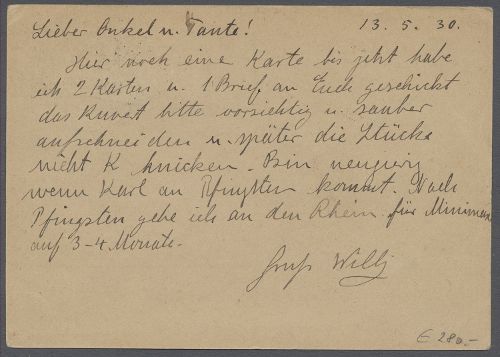 Lieber Onkel u. Tante! 13.5.30.
Hier noch eine Karte bis jetzt habe
ich 2 Karten u. 1 Brief an Euch geschickt
das Kuvert bitte vorsichtig u. sauber
aufschneiden u. später die Stücke
nicht K knicken. Bin neugirig
wenn Karl an Pfingsten kommt. Nach
Pfingsten gehe ich an den Rhein für
auf 3-4 Monate.
Gruß Willy
€ 280.-